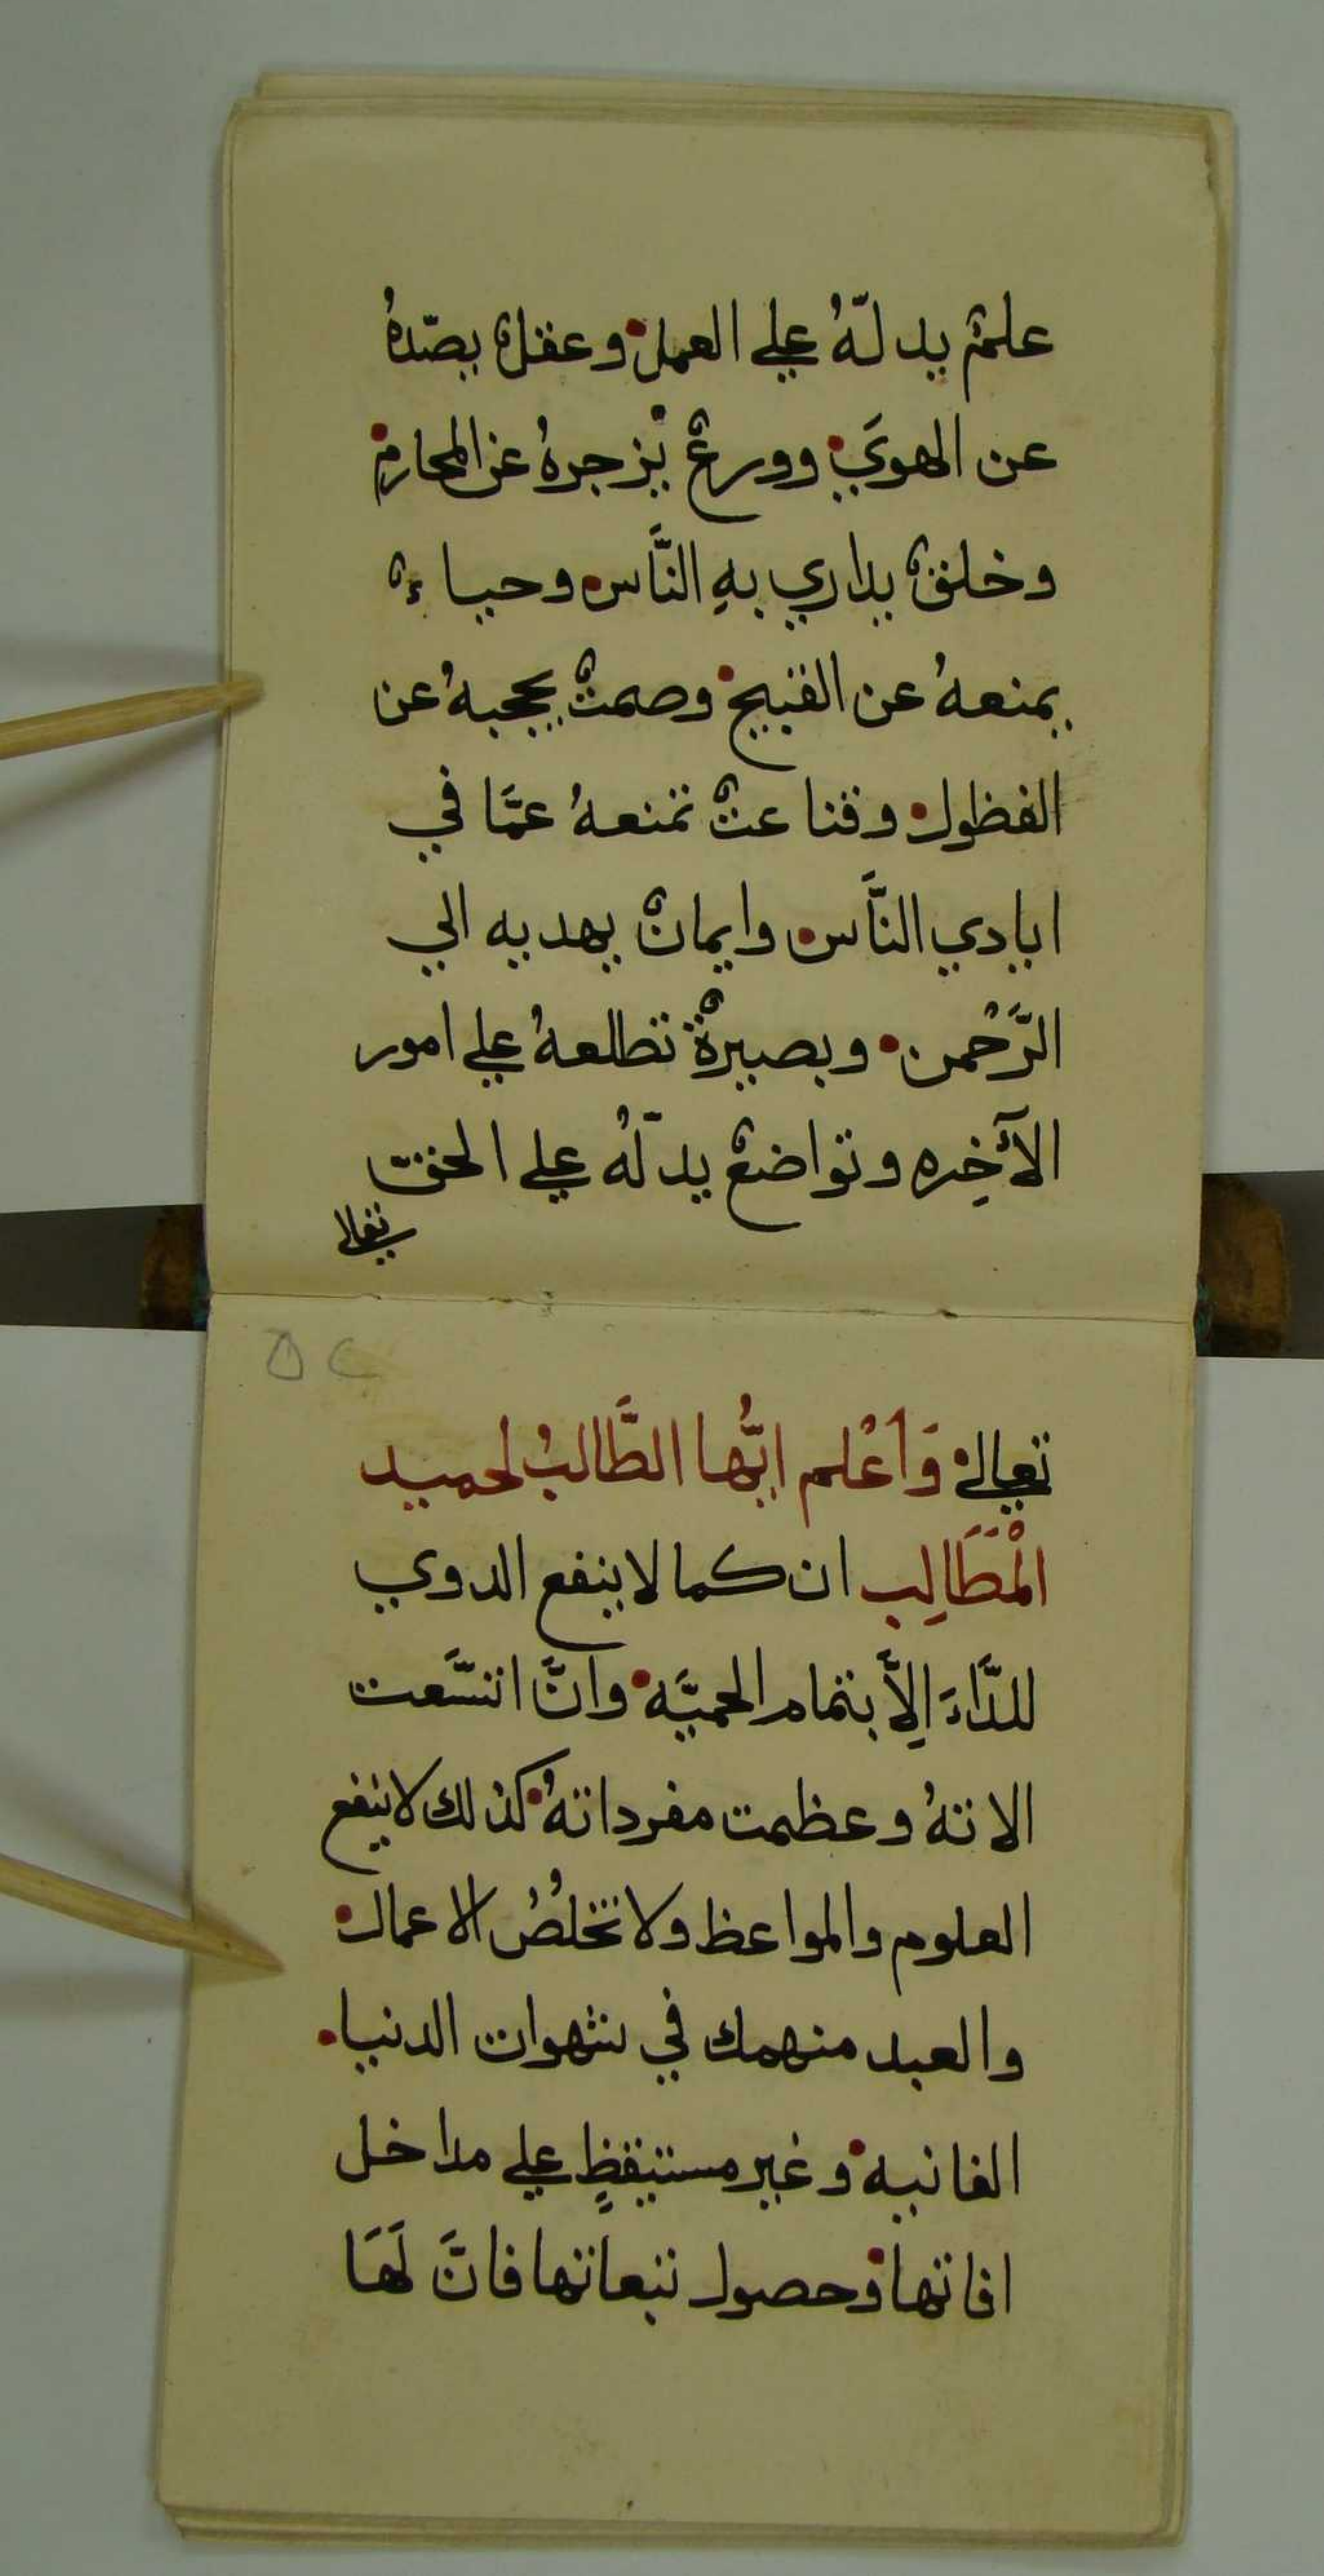 علمٌ يدلّهُ علي العمل وعقلٌ يصّدهُ
عن الهويَ وورعٌ يزجرهُ عن المحارم
وخلقٌ يداري بهِ النَّاس وحياءٌ
يمنعهُ عن القبيح وصمتٌ يحجبهُ عن
الفظول وقناعتٌ تمنعهُ عمَّا في
ايادي النَّاس وايمانٌ يهديه الي
الرَّحْمن وبصيرةٌ تطلعهُ علي امور
الآخِره وتواضعٌ يدلّهُ علي الحق
تعالي
٥٢
تعالي وَأعْلم ايُّها الطَّالبُ لحميد
الْمَطَالِب ان كما لا ينفع الدوي
للدَّاءَ اِلاَّ بتمام الحميَّه وانَّ اتسَّعت
الاتهُ وعظمت مفرداتهُ كذلك لا ينفع
العلوم والمواعظ ولا تخلُصُ الاعمال
والعبد منهمك في شهوات الدنيا
الفانيه وغير مستيقظٍ علي مداخل
افاتها وحصول تبعاتها فانَّ لَهَا